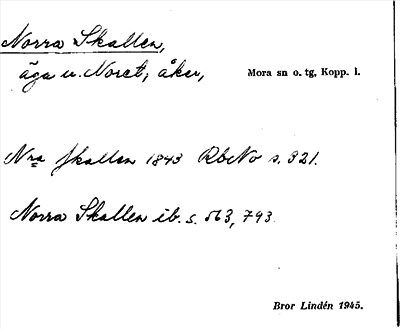 Norra Skallen,
äga u. Noret; åker,
Mora sn o. tg, Kopp. l.
Nra Skallen 1843 RbNo s. 321.
Norra Skallen ib. s. 563, 793.
Bror Lindén 1945.